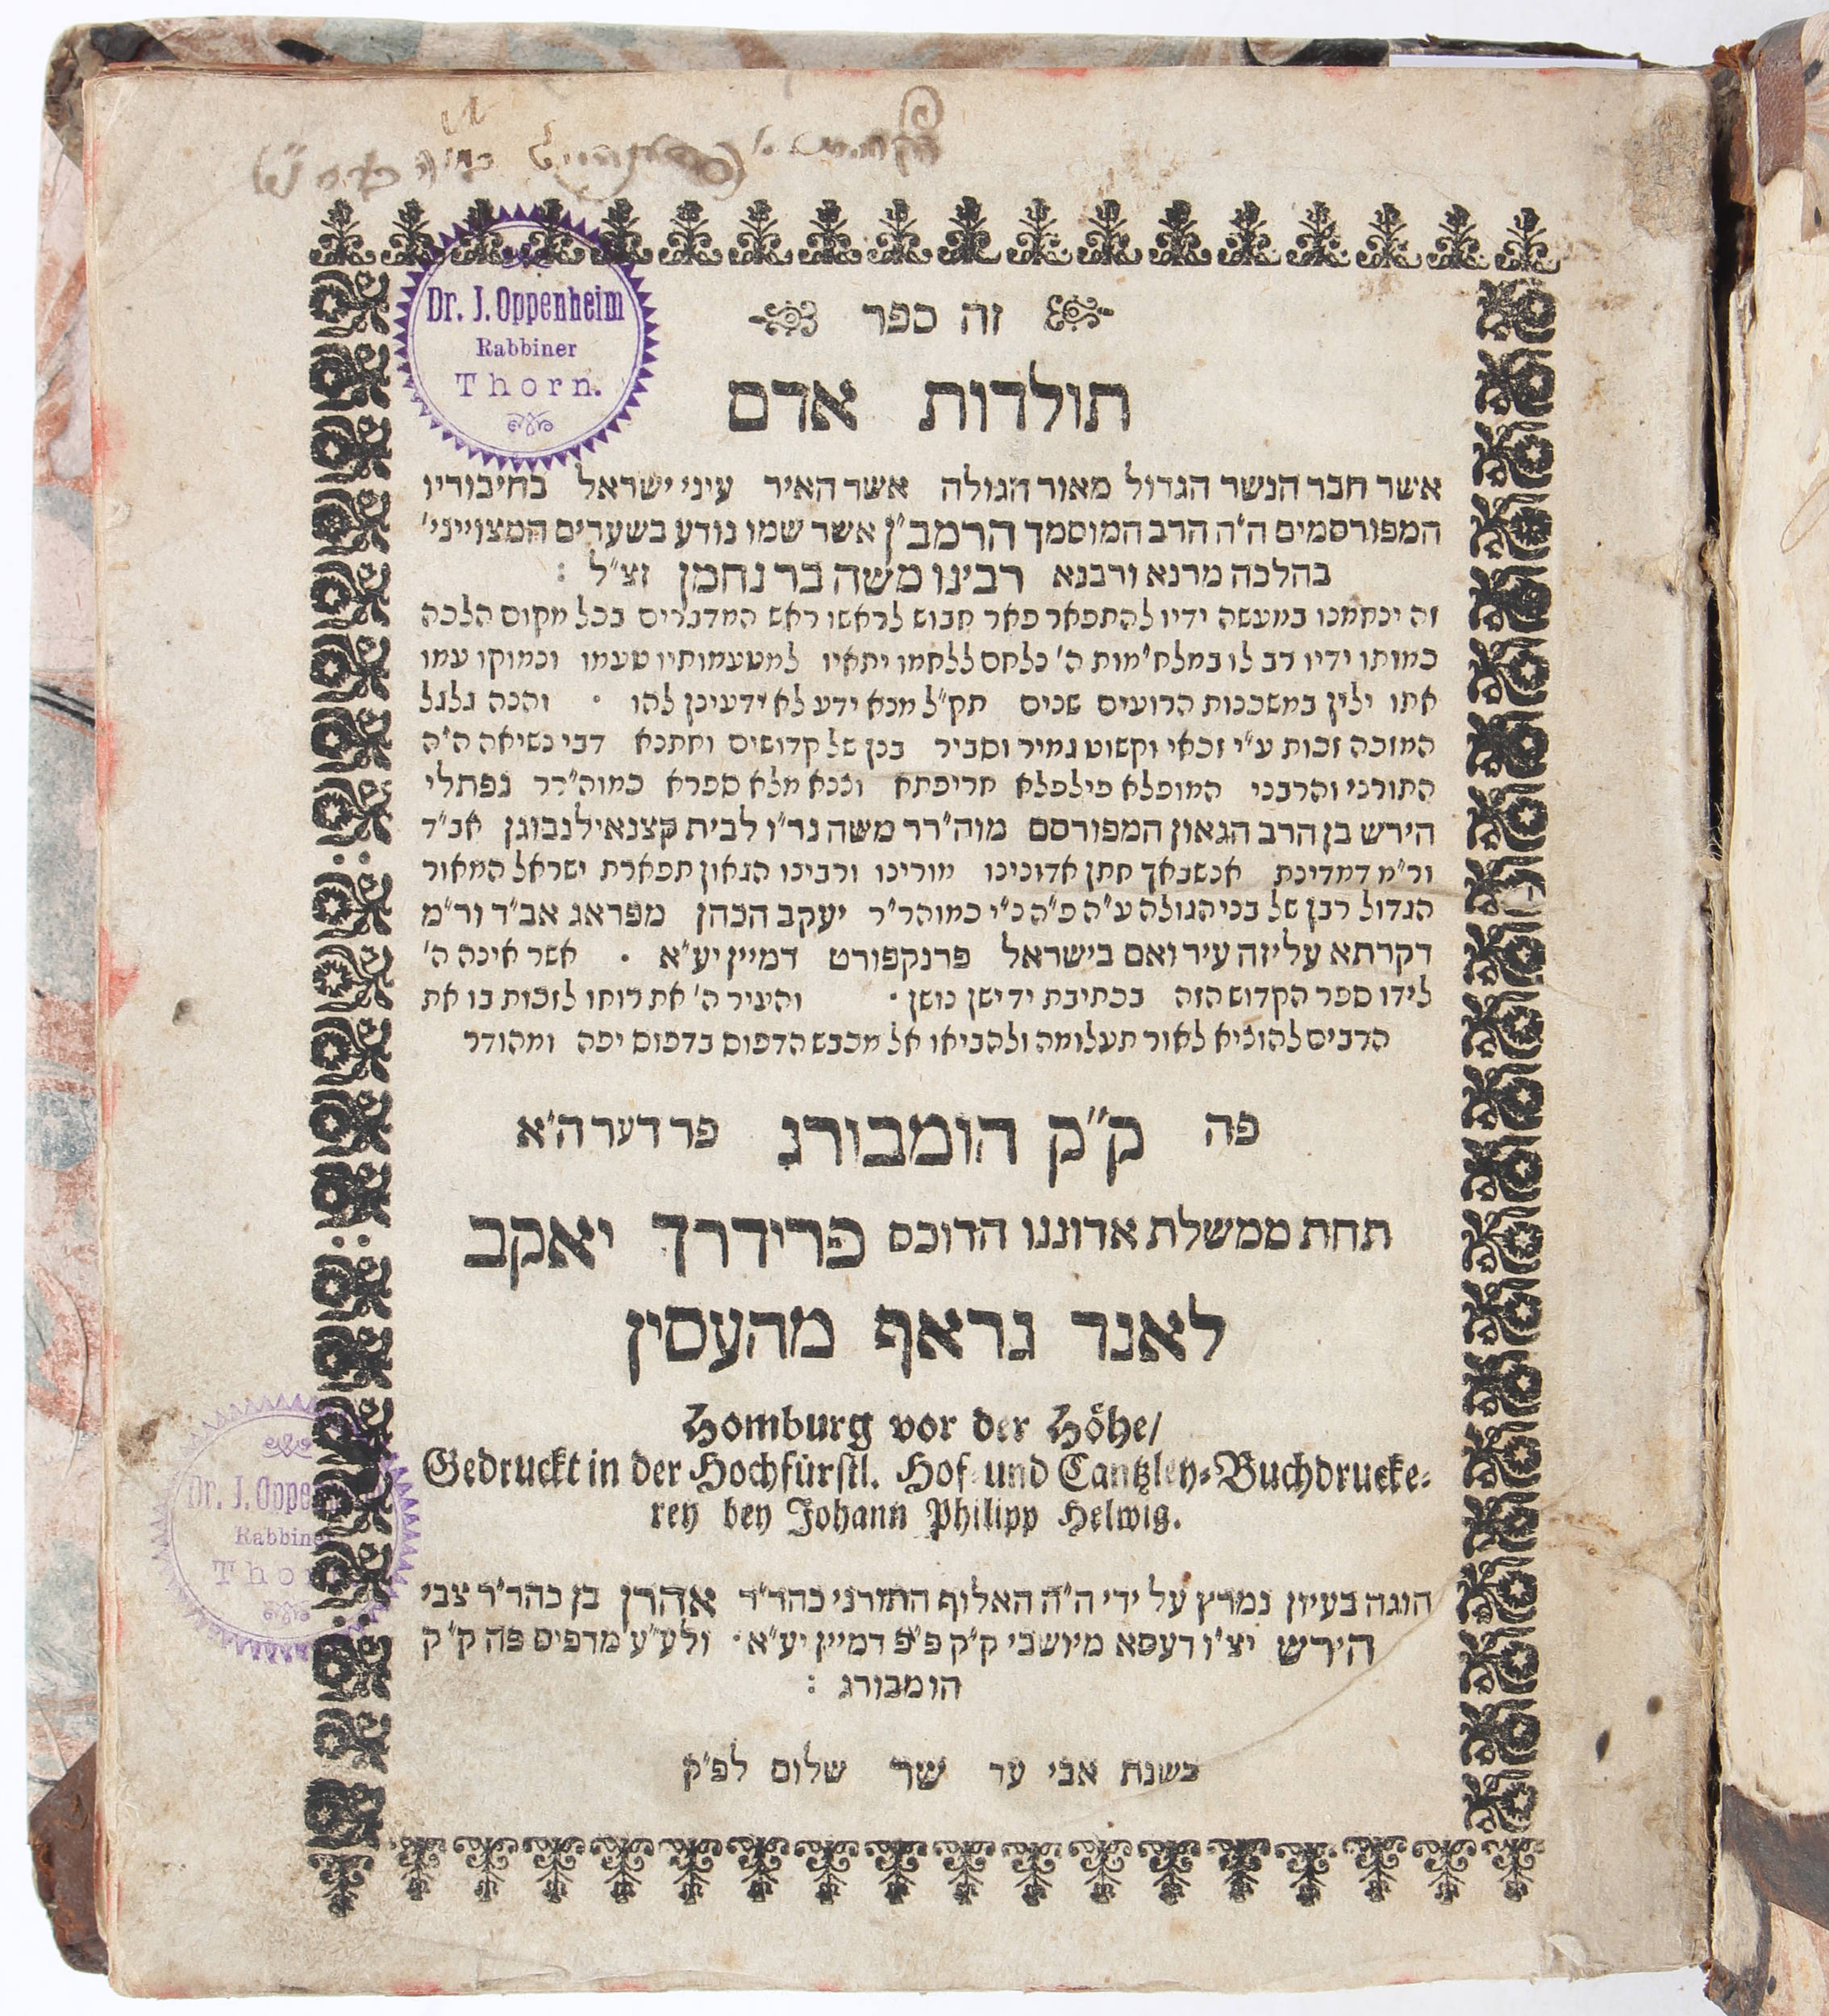 Dr. J. Oppenheim
Rabbiner
Thorn.
זה ספר
תולדות אדם
אשר חבר הנשר הגדול מאור הגולה אשר האיר עיני ישראל בחיבוריו
המפורסמים ה״ה הרב המוסמך הרמב״ן אשר שמו נודע בשערים המצוייני׳
בהלכה מרנא ורבנא רבינו משה בר נחמן זצ״ל :
זה ינחמנו במעשה ידיו להתפאר פאר חבוש לראשו ראש המדברים בכל מקום הלכה
כמותו ידיו רב לו במלח׳מות ה׳ כלחם ללחמו יתאיו למטעמותיו טעמו וכמוקו עמו
אתו ילין במשכנות הרועים שנים תק״ל מנא ידע לא ידעינן להו · והנה גלגל
המזכה זכות ע״י זכאי וקשוט גמיר וסביר בנן של קדושים וחתנא דבי נשיאה ה״ה
התורני והרבני המופלא פילפלא חריפתא וצנא מלא ספרא כמוה״רר נפתלי
הירש בן הרב הגאון המפורסם מוה״רר משה נר״ו לבית קצנאילנבוגן אב״ד
ור״מ דמדינת אנשבאך חתן אדונינו מורינו ורבינו הגאון תפארת ישראל המאור
הגדול רבן של בני הגולה ע״ה פ״ה נ״י כמוהר״ר יעקב הכהן מפראג אב״ד ור״מ
דקרתא עליזה עיר ואם בישראל פרנקפורט דמיין יע״א · אשר אינה ה׳
לידו ספר הקדוש הזה בכתיבת יד ישן נושן · והעיר ה׳ את רוחו לזכות בו את
הרבים להוציא לאור תעלומה ולהביאו אל מכבש הדפוס בדפוס יפה ומהודר
פה ק״ק הומבורג פר דער ה״א
תחת ממשלת אדוננו הדוכס פרידרך יאקב
לאנד גראף מהעסין
Homburg vor der Höhe/
Gedruckt in der Hochfürstl. Hof- und Cantzley-Buchdrucke-
rey bey Johann Philipp Helwig.
הוגה בעיון נמרץ על ידי ה״ה האלוף התורני כהר״ר אהרן בן כהר״ר צבי
הירש יצ״ו דעסא מיושבי ק״ק פ״פ דמיין יע״א · ולע״ע מדפיס פה ק״ק
הומבורג :
בשנת אבי עד שר שלום לפ״ק
Dr. J. Oppe
Rabbine
Thor